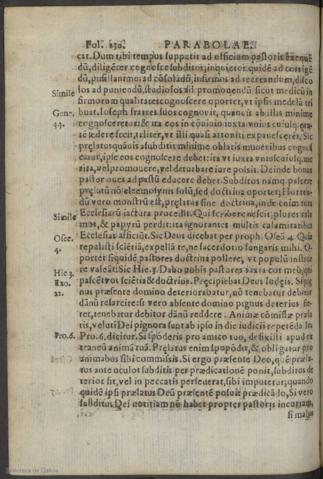 Fol. 230. PARABOLAE.
eat. Dum tibi tempus suppetit ad officium pastoris exequē
dū, diligēter cognosce subditos, inquietos quidē ad corrigē
dū, pusillanimes ad cōsolādū, infirmos ad recreandum,
los ad puniendū, studiosos ad promouendū: sicut medicū in
Simile
firmorum qualitates cognoscere oportet, vt ipsis medelā tri
Gene. buat. Ioseph fratres suos cognouit, quanuis ab illis minime
44. cognosceretur: fecit eos in cōuiuio iuxta vnius cuiusq; ęta
tē sedere fecit, taliter, vt illi quasi attoniti expauescerēt. Sic
prelatus quāuis a subditis minime oblatis muneribus cognos
catur, ipse eos cognoscere debet: ita vt iuxta vniuscuiusq; me
rita, vel promouere, vel deturbare iure possit. Deinde bonus
pastor oues ad pastū educere debet. Subditos nāmq; pascere
prelatū nō eleemosynis solū, sed doctrina oportet; Horren-
dū vero monstrū est, prelatus sine doctrina, inde enim tota
Simile Ecclesiarū iactura procedit. Qui scribere nescit; plures
mos, & papyrū perdit: ita ignorantes multis calamitatibus
Osee. Ecclesias afficiūt. Sic Deus dicebat per proph. Oseā 4. Quia
4. repulisti sciētiā, expellā te, ne sacerdotio fungaris mihi. O-
portet siquidē pastores doctrina pollere, vt populū instrue
Hie. 3. re valeāt. Sic Hie. 3. Dabo vobis pastores iuxta cor meū, qui
Exo. pascēt vos sciētia & doctrina. Precipiebat Deus Iudęis. Si pig
22. nus pręsente domino deterioretur, nō tenebatur debitor
dānū resarcire: si vero absente domino pignus deterius fie-
ret, tenebatur debitor dānū reddere. Animę cōmissę præla
tis, veluti Dei pignora sunt ab ipso in die iudicii repetēda In
Pro. 6. Pro. 6. dicitur. Si spōderis pro amico tuo, defixisti apud ex
traneū animā tuā. Pręlatus enim spōpōdit, & obligatur pro
animabus sibi commissis. Si ergo præsente Deo, quē præla-
tus ante oculos subditis per prædicationē ponit, subditus de
terior sit, vel in peccatis perseuerat, sibi imputetur; quando
quidē ipsi prælatus Deū præsentē posuit prædicādo, Si vero
subditus Dei notitiam nō habet propter pastoris incuriam,
si malus